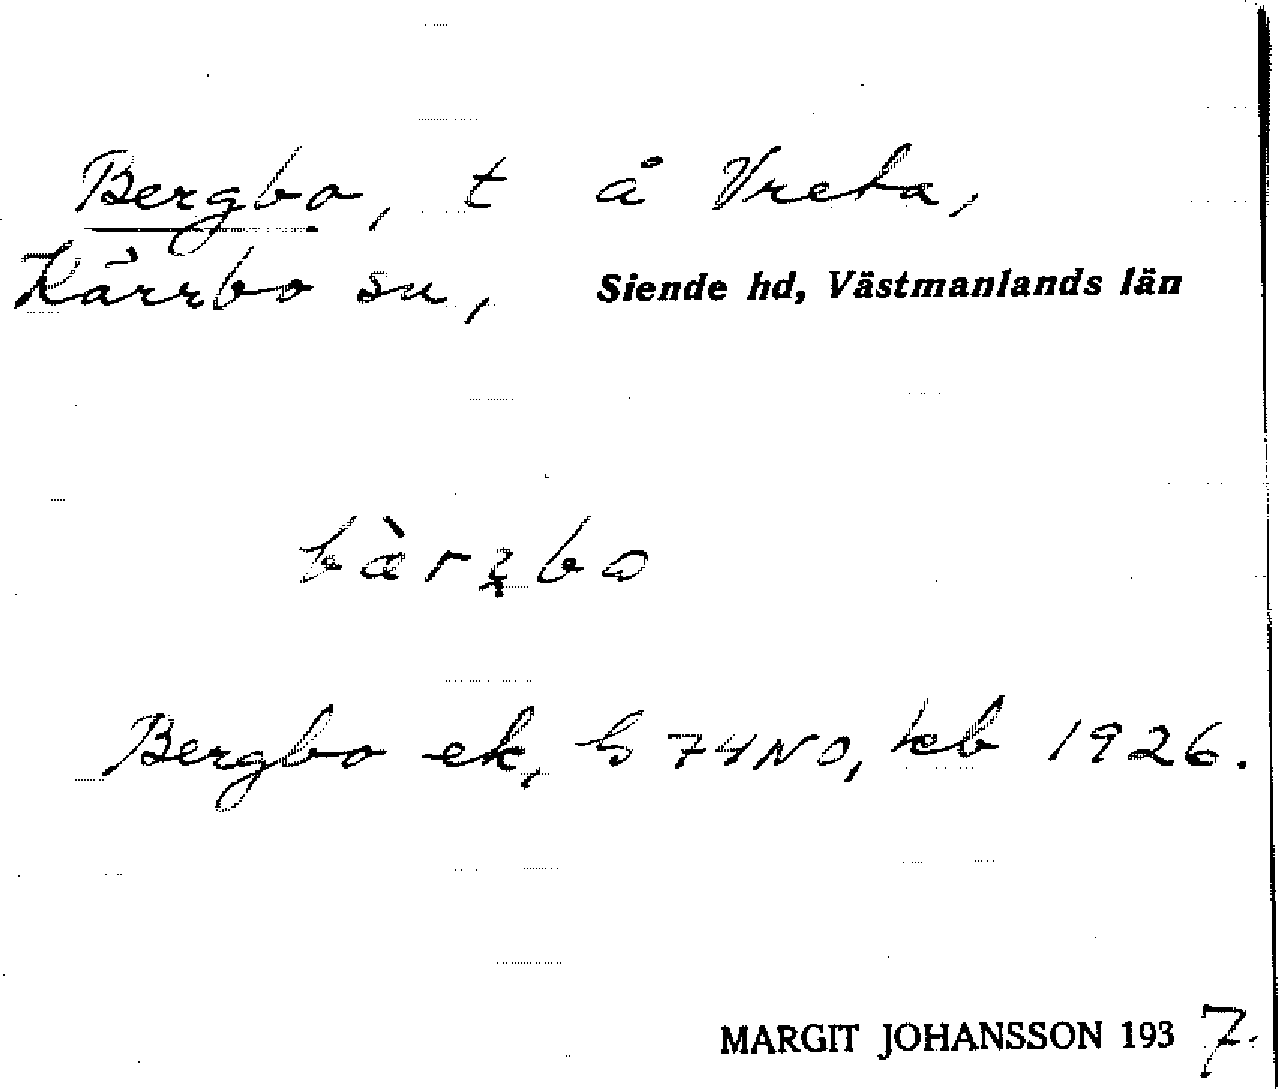 Bergbo, t å Vreta,
Kärrbo sn, Siende hd, Västmanlands län
Bergbo ek, G 74 NO, kb 1926.
MARGIT JOHANSSON 1937.